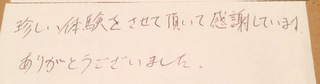 珍しい体験をさせて頂いて感謝しています。
ありがとうございました。